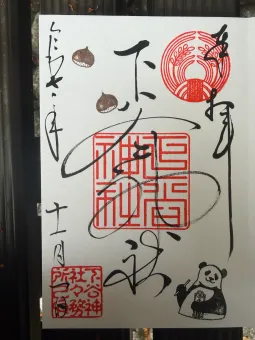 奉拝
下谷神社
下谷神社
令和七年
十一月一日
下谷神
社々務
所之印